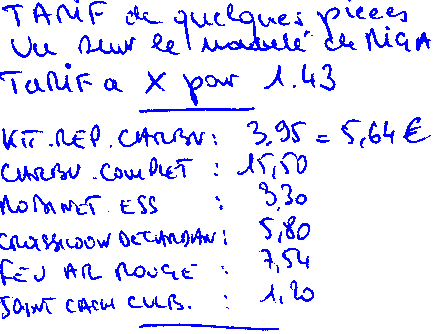 TARIF de quelques pieces
Vu sur le modele de RIGA
TARIF a X par 1.43
KIT.REP.CARBU: 3,95 = 5,64 €
CARBU.COMPLET : 15,50
ROBINET ESS : 3,30
: 5,80
FEU AR ROUGE : 7,54
JOINT CACH CULB. : 1,20